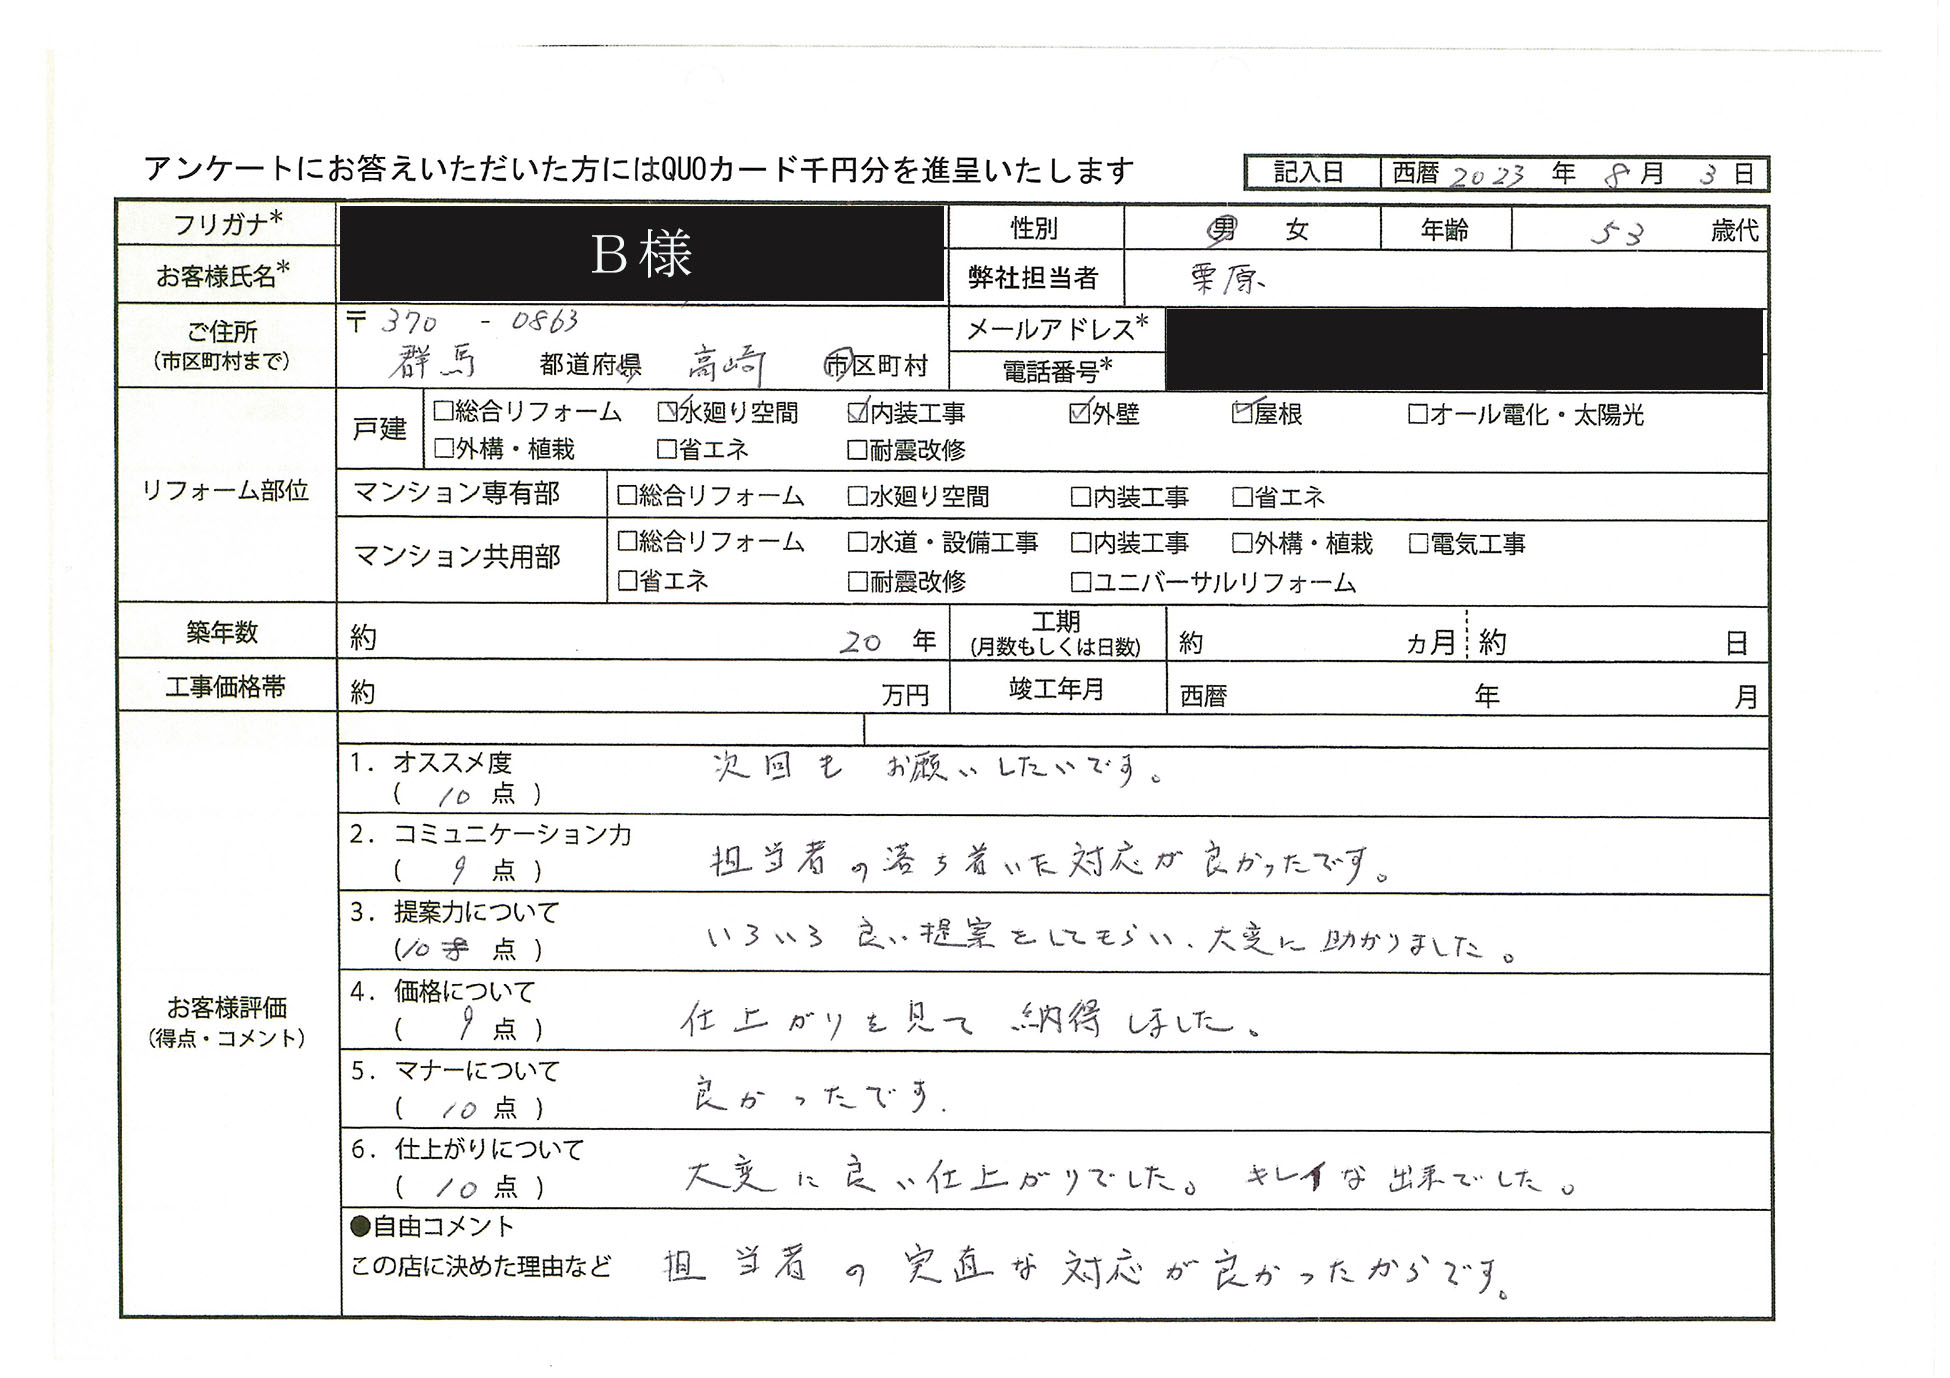 アンケートにお答えいただいた方にはQUOカード千円分を進呈いたします
記入日 西暦 2023 年 8 月 3 日
フリガナ* B様 性別 男 女 年齢 53 歳代
お客様氏名* 弊社担当者 栗原
ご住所 (市区町村まで) 〒 370 - 0863 メールアドレス*
群馬 都道府県 高崎 市区町村 電話番号*
リフォーム部位
戸建 □総合リフォーム ☑水廻り空間 ☑内装工事 ☑外壁 ☑屋根 □オール電化・太陽光
□外構・植栽 □省エネ □耐震改修
マンション専有部 □総合リフォーム □水廻り空間 □内装工事 □省エネ
マンション共用部 □総合リフォーム □水道・設備工事 □内装工事 □外構・植栽 □電気工事
□省エネ □耐震改修 □ユニバーサルリフォーム
築年数 約 20 年 工期 (月数もしくは日数) 約 ヵ月 約 日
工事価格帯 約 万円 竣工年月 西暦 年 月
お客様評価
(得点・コメント)
1. オススメ度 次回も お願いしたいです。
( 10 点 )
2. コミュニケーション力
( 9 点 ) 担当者の落ち着いた対応が良かったです。
3. 提案力について
(10 点 ) いろいろ良い提案をしてもらい、大変に助かりました。
4. 価格について
( 9 点 ) 仕上がりを見て 納得しました。
5. マナーについて
( 10 点 ) 良かったです.
6. 仕上がりについて
( 10 点 ) 大変に良い仕上がりでした。 キレイな出来でした。
●自由コメント
この店に決めた理由など 担当者の実直な対応が良かったからです。